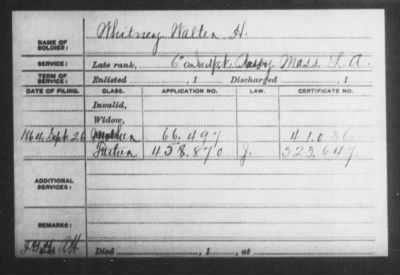 NAME OF SOLDIER: Whitney Walter H.
SERVICE: Late rank, Mass. L. A.
TERM OF SERVICE: Enlisted , 1 Discharged , 1
DATE OF FILING. CLASS. APPLICATION NO. LAW. CERTIFICATE NO.
Invalid,
Widow,
Sept. 26 66.497 41.036
458.870 J. 323.647
ADDITIONAL SERVICES:
REMARKS:
Died , 1 , at